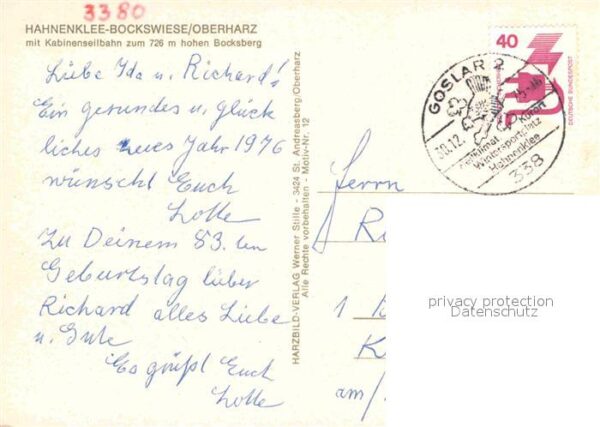 3380
HAHNENKLEE-BOCKSWIESE/OBERHARZ
mit Kabinenseilbahn zum 726 m hohen Bocksberg
Liebe Ida u. Richard!
Ein gesundes u. glück
liches neues Jahr 1976
wünscht Euch
Lotte
Zu Deinem 53. ten
Geburtstag lieber
Richard alles Liebe
u. Gute
Es grüßt Euch
Lotte
HARZBILD-VERLAG Werner Stille - 3424 St. Andreasberg/Oberharz
Alle Rechte vorbehalten - Motiv-Nr. 12
40
DEUTSCHE BUNDESPOST
GOSLAR 2
30.12.
Heilklimat. Kurort
Wintersportplatz
Hahnenklee
338
Herrn
R
1
K
am/
privacy protection
Datenschutz